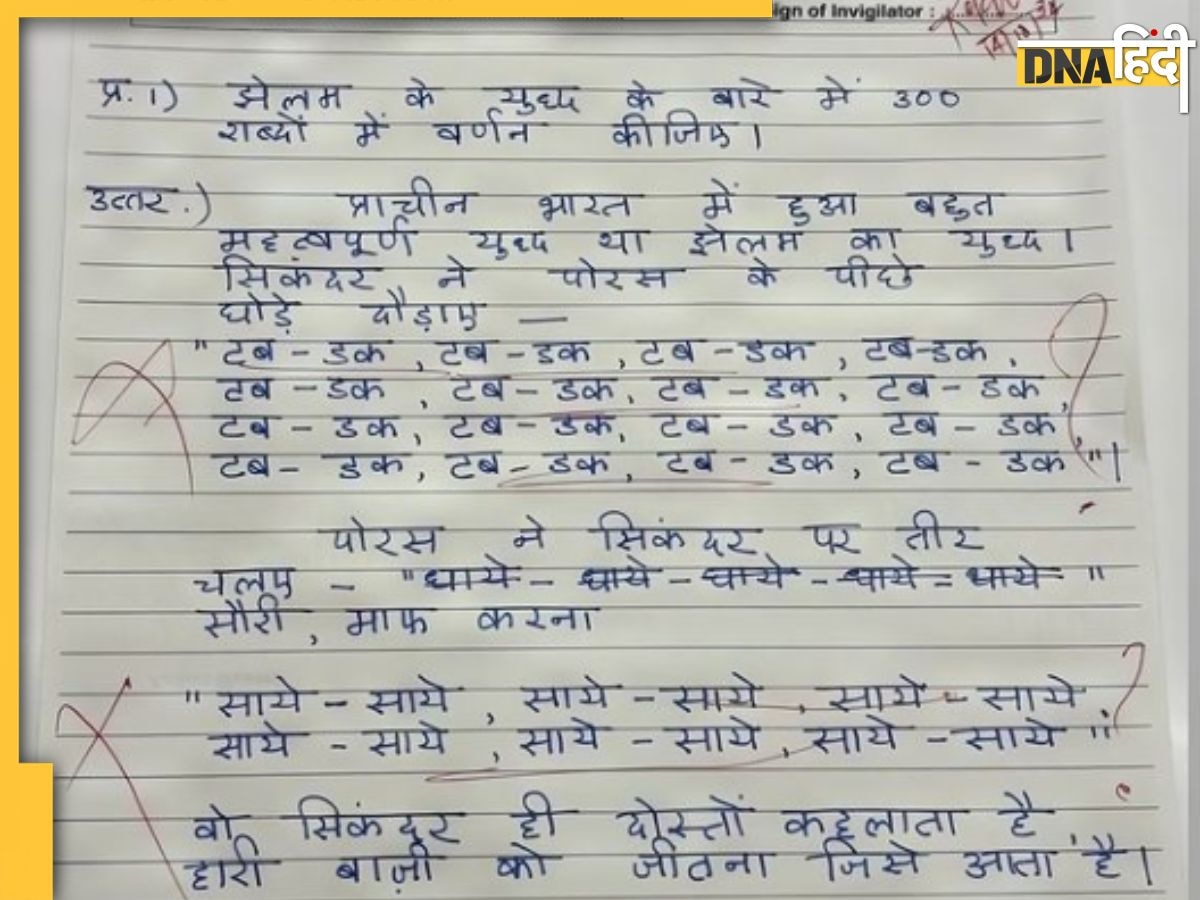 ign of Invigilator :
DNA हिंदी
प्र. 1) झेलम के युध्द के बारे में 300
शब्दों में वर्णन कीजिए।
उत्तर.) प्राचीन भारत में हुआ बहुत
महत्वपूर्ण युध्द था झेलम का युध्द।
सिकंदर ने पोरस के पीछे
घोड़े दौड़ाए —
" टब - डक , टब - डक , टब - डक , टब-डक ,
टब - डक , टब - डक, टब - डक, टब - डक,
टब - डक, टब - डक, टब - डक , टब - डक,
टब - डक, टब - डक, टब - डक , टब - डक "।
पोरस ने सिकंदर पर तीर
चलाए - " धाये - धाये - धाये - धाये = धाये - "
सौरी , माफ करना
" साये - साये , साये - साये , साये - साये,
साये - साये , साये - साये , साये - साये "
वो सिकंदर ही दोस्तों कहलाता है,
हारी बाज़ी को जीतना जिसे आता है।